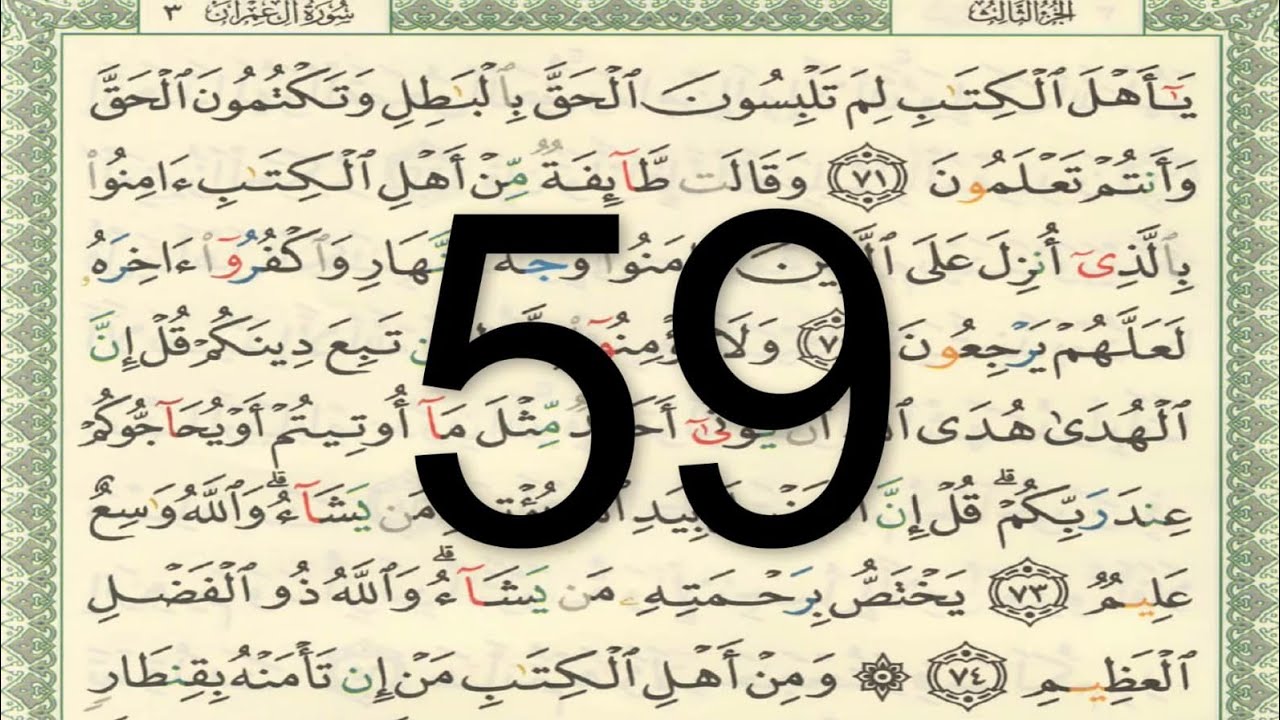 الجُزْءُ الثَّالِثُ
سُورَةُ آلِ عِمْرَانَ ٣
يَـٰٓأَهْلَ ٱلْكِتَـٰبِ لِمَ تَلْبِسُونَ ٱلْحَقَّ بِٱلْبَـٰطِلِ وَتَكْتُمُونَ ٱلْحَقَّ
وَأَنتُمْ تَعْلَمُونَ ٧١ وَقَالَت طَّآئِفَةٌ مِّنْ أَهْلِ ٱلْكِتَـٰبِ ءَامِنُوا۟
بِٱلَّذِىٓ أُنزِلَ عَلَى وَٱكْفُرُوٓا۟ ءَاخِرَهُۥ
لَعَلَّهُمْ يَرْجِعُونَ وَلَا تَبِعَ دِينَكُمْ قُلْ إِنَّ
ٱلْهُدَىٰ هُدَى مِّثْلَ مَآ أُوتِيتُمْ أَوْ يُحَآجُّوكُمْ
عِندَ رَبِّكُمْ ۗ قُلْ إِنَّ بِيَدِ مَن يَشَآءُ ۗ وَٱللَّهُ وَٰسِعٌ
عَلِيمٌ ٧٣ يَخْتَصُّ بِرَحْمَتِهِۦ مَن يَشَآءُ ۗ وَٱللَّهُ ذُو ٱلْفَضْلِ
ٱلْعَظِيمِ ٧٤ ۞ وَمِنْ أَهْلِ ٱلْكِتَـٰبِ مَنْ إِن تَأْمَنْهُ بِقِنطَارٍ
59